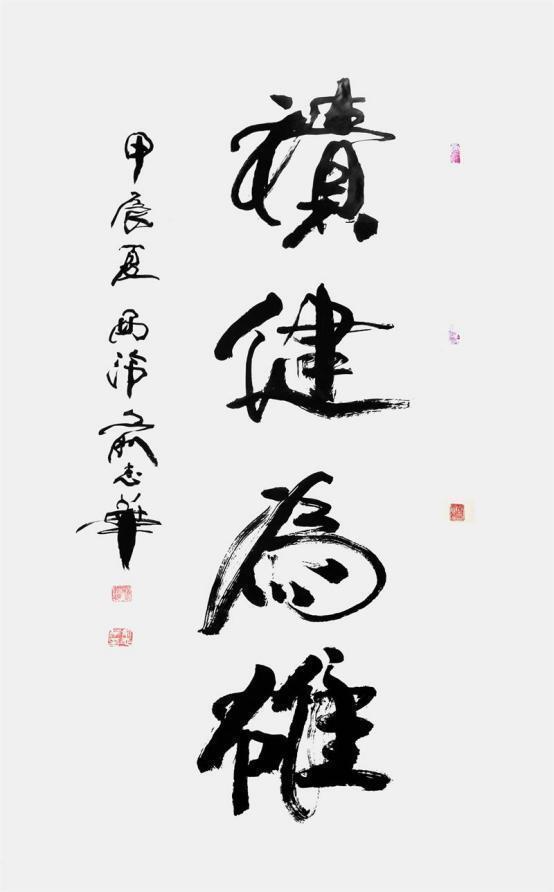 積健為雄
甲辰夏西泠俞志華